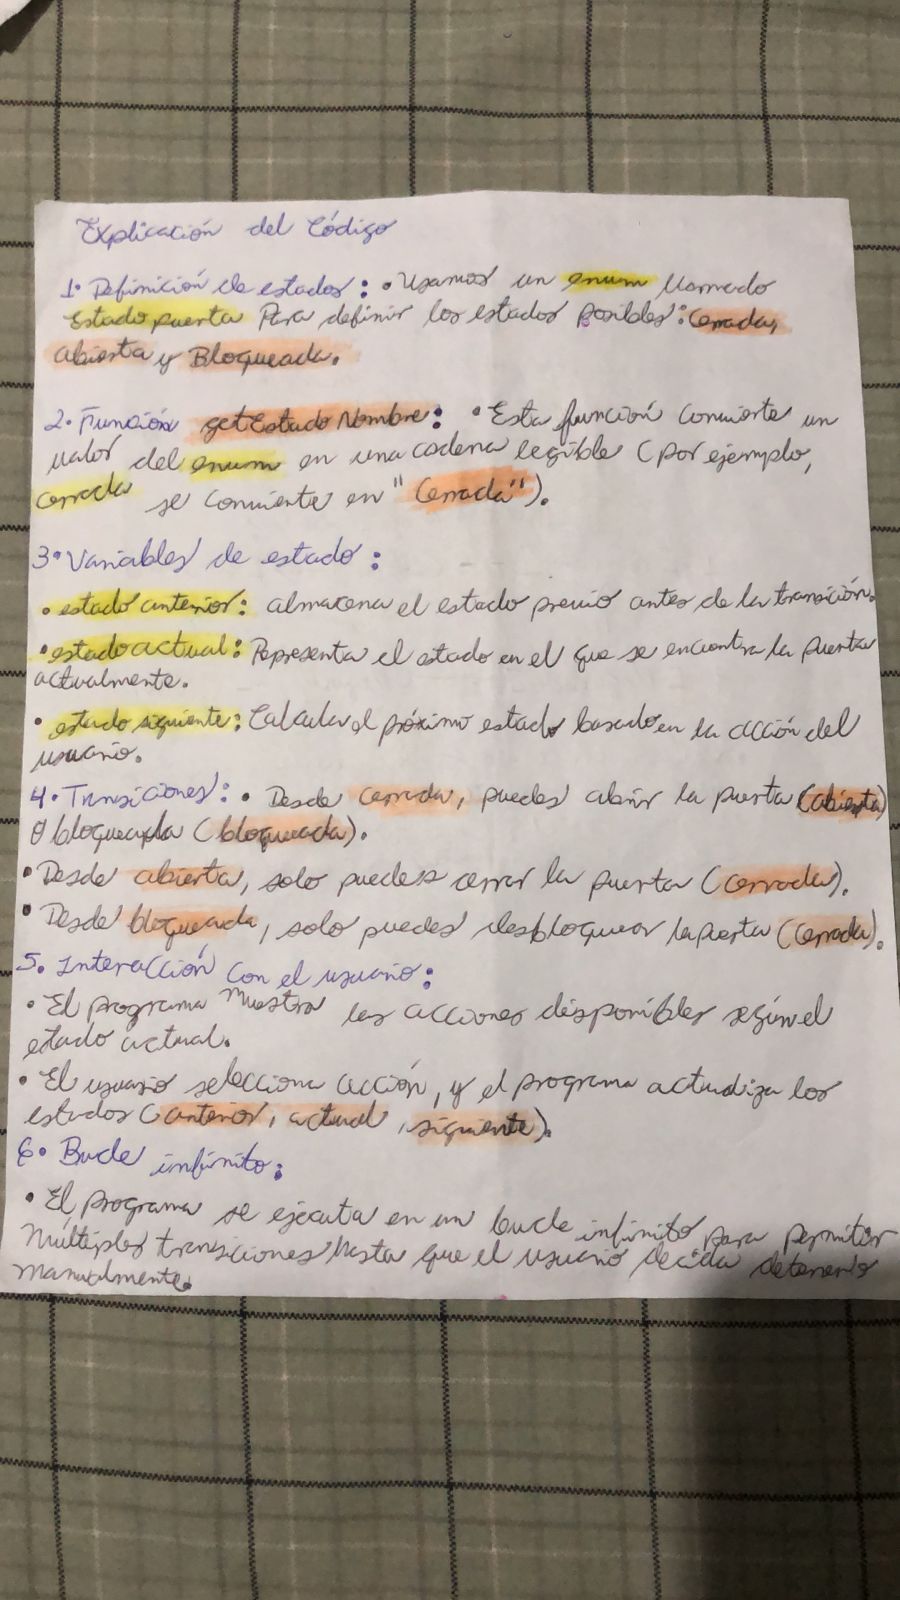 Explicación del Código
1. Definición de estados: • Usamos un enum llamado
Estado puerta Para definir los estados posibles: Cerrada,
abierta y Bloqueada.
2. Función getEstado Nombre: • Esta función convierte un
valor del enum en una cadena legible (por ejemplo,
cerrada se convierte en "Cerrada").
3. Variables de estado:
• estado anterior: almacena el estado previo antes de la transición.
• estado actual: Representa el estado en el que se encuentra la puerta
actualmente.
• estado siguiente: Calcula el próximo estado basado en la acción del
usuario.
4. Transiciones: • Desde cerrada, puedes abrir la puerta (abierta)
o bloquearla (bloqueada).
• Desde abierta, solo puedes cerrar la puerta (cerrada).
• Desde bloqueada, solo puedes desbloquear la puerta (Cerrada).
5. Interacción con el usuario:
• El programa Muestra las acciones disponibles según el
estado actual.
• El usuario selecciona acción, y el programa actualiza los
estados (anterior, actual, siguiente).
6. Bucle infinito:
• El programa se ejecuta en un bucle infinito para permitir
Múltiples transiciones hasta que el usuario decida detenerlo
manualmente.